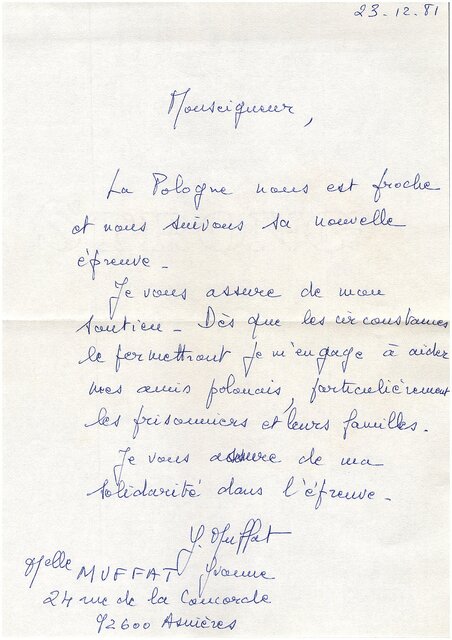 23.12.81
Monseigneur,
La Pologne nous est proche
et nous suivons sa nouvelle
épreuve.
Je vous assure de mon
soutien - Dès que les circonstances
le permettront je m'engage à aider
mes amis polonais, particulièrement
les prisonniers et leurs familles.
Je vous assure de ma
solidarité dans l'épreuve.
Y. Muffat
Melle MUFFAT Yvonne
24 rue de la Concorde
92600 Asnières